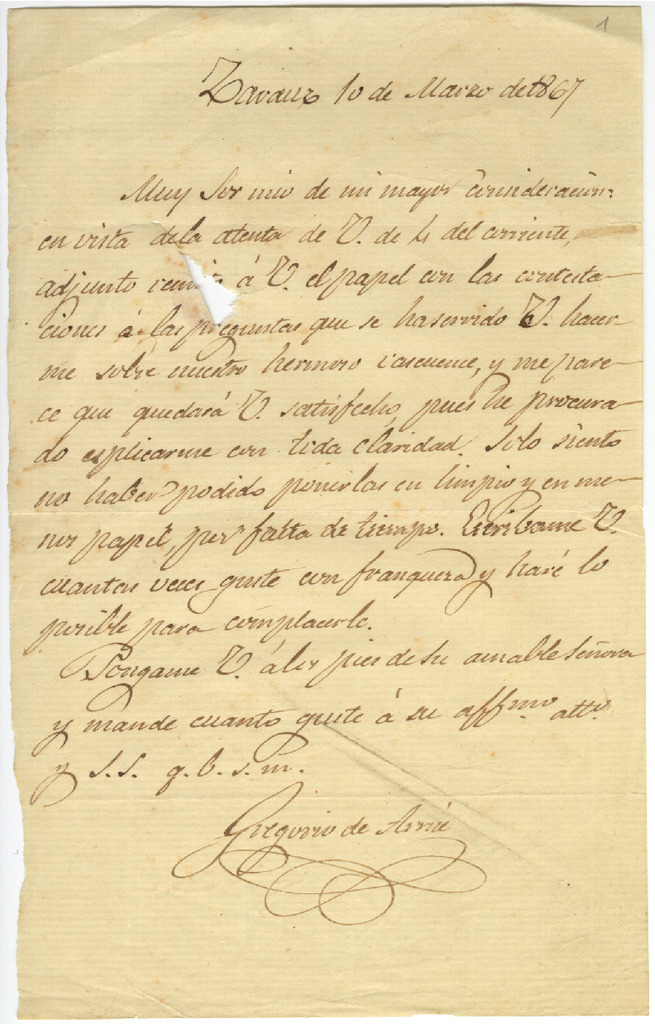 1
Zarauz 10 de Marzo de 1867
Muy Sor mio de mi mayor consideracion:
en vista dela atenta de V. de 4 del corriente,
adjunto remito á V. el papel con las contesta-
ciones á las preguntas que se ha servido V. hacer-
me sobre nuestro hermoso vascuence, y me pare-
ce que quedará V. satisfecho, pues he procura-
do esplicarme con toda claridad. Solo siento
no haber podido ponerlas en limpio y en me-
nos papel, por falta de tiempo. Escribame V.
cuantas veces guste con franqueza y haré lo
posible para complacerle.
Pongame V. á los pies de su amable Señora
y mande cuanto guste á su affmo atto.
y S.S. q. b. s. m.
Gregorio de Arrue